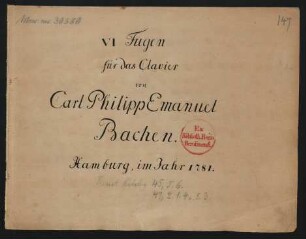 149
VI Fugen
für das Clavier
von
Carl Philipp Emanuel
Bachen.
Ex
Biblioth. Regia
Berolinensi.
Hamburg, im Jahr 1781.